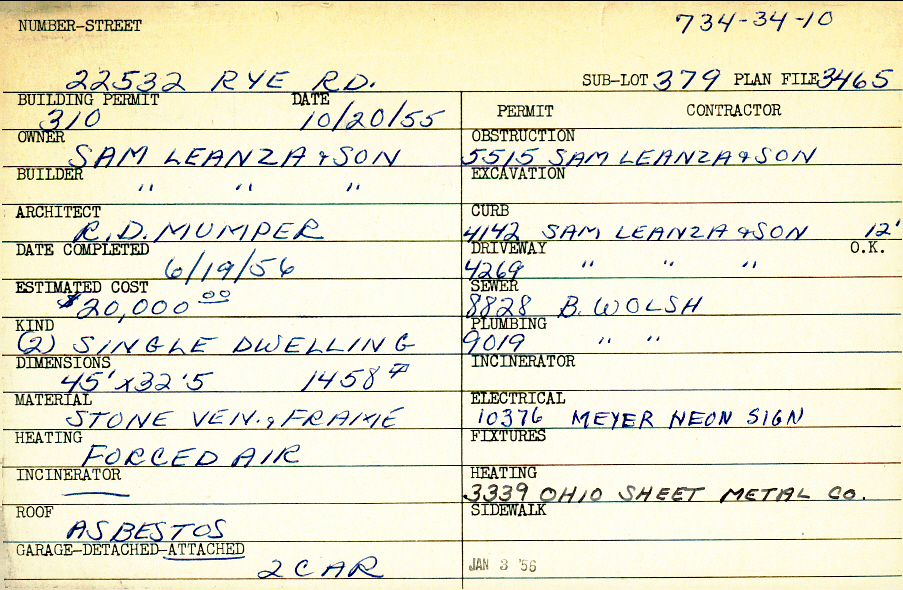 NUMBER-STREET
734-34-10
22532 RYE RD.
SUB-LOT 379 PLAN FILE 3465
BUILDING PERMIT DATE
310 10/20/55
OWNER
SAM LEANZA & SON
BUILDER
" " "
ARCHITECT
R.D. MUMPER
DATE COMPLETED
6/19/56
ESTIMATED COST
$20,000 00
KIND
(2) SINGLE DWELLING
DIMENSIONS
45' x 32'5 1458
MATERIAL
STONE VEN., FRAME
HEATING
FORCED AIR
INCINERATOR
—
ROOF
ASBESTOS
GARAGE-DETACHED-ATTACHED
2 CAR
PERMIT CONTRACTOR
OBSTRUCTION
5515 SAM LEANZA & SON
EXCAVATION
CURB
4142 SAM LEANZA & SON 12'
DRIVEWAY O.K.
4269 " " "
SEWER
8828 B. WOLSH
PLUMBING
9019 " "
INCINERATOR
ELECTRICAL
10376 MEYER NEON SIGN
FIXTURES
HEATING
3339 OHIO SHEET METAL CO.
SIDEWALK
JAN 3 '56